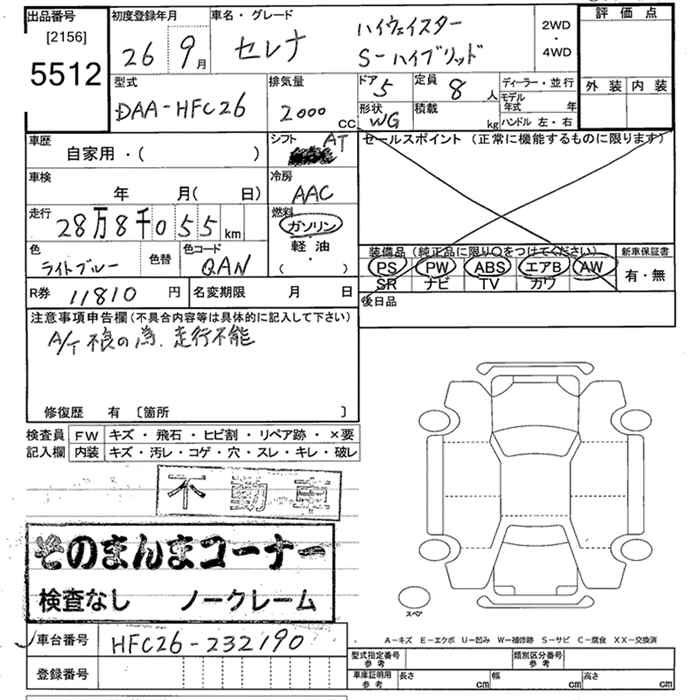 出品番号
[2156]
5512
初度登録年月
26 9月
車名・グレード
セレナ
ハイウェイスター
S-ハイブリッド
2WD
・
4WD
評価点
外装 内装
型式
DAA-HFC26
排気量
2000 CC
ドア 5
定員 8 人
形状 WG
積載 kg
ディーラー・並行
モデル年式 年
ハンドル 左・右
車歴
自家用・( )
シフト AT
セールスポイント (正常に機能するものに限ります)
車検
年 月( 日)
冷房
AAC
走行
28万8千055 km
燃料
ガソリン
軽油
( ・ )
色
ライトブルー
色替
色コード
QAN
装備品(純正品に限り○をつけてください)
PS PW ABS エアB AW
SR ナビ TV カワ
新車保証書
有・無
R券 11810 円
名変期限 月 日
後日品
注意事項申告欄(不具合内容等は具体的に記入して下さい)
A/T 不良の為、走行不能
修復歴 有 [箇所 ]
検査員 FW キズ・飛石・ヒビ割・リペア跡・×要
記入欄 内装 キズ・汚レ・コゲ・穴・スレ・キレ・破レ
不動車
そのまんまコーナー
検査なし ノークレーム
スペア
A-キズ E-エクボ U-凹み W-補修跡 S-サビ C-腐食 XX-交換済
車台番号 HFC26-232190
登録番号
型式指定番号 参考
類別区分番号 参考
車庫証明用 参考 長さ cm 幅 cm 高さ cm